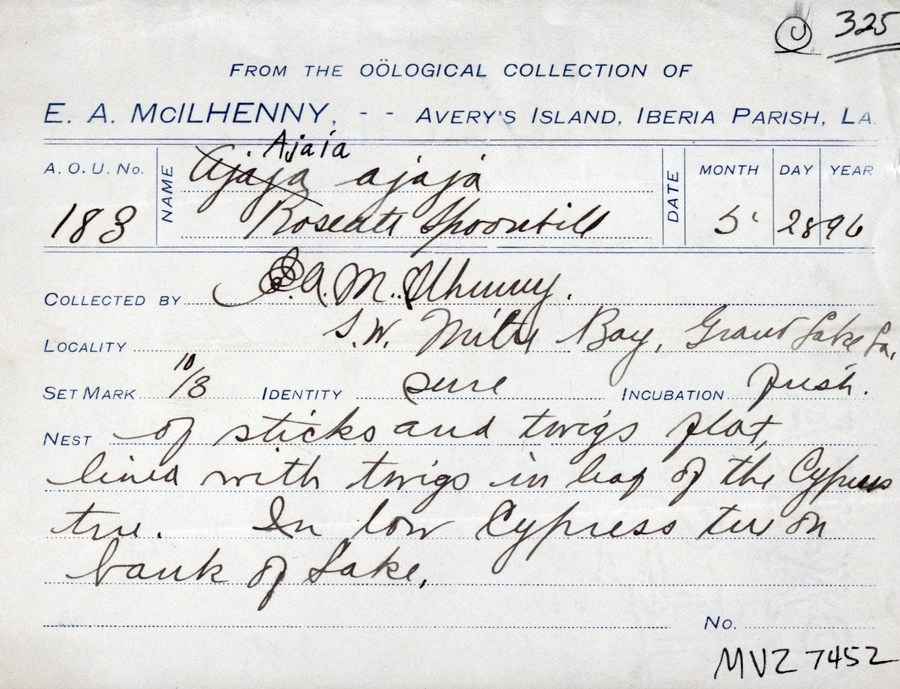 325
FROM THE OÖLOGICAL COLLECTION OF
E. A. McILHENNY, - - AVERY'S ISLAND, IBERIA PARISH, LA.
Ajaia
A. O. U. No. NAME Ajaja ajaja DATE MONTH DAY YEAR
183 Roseate Spoonbill 5 28 96
COLLECTED BY E.A. McIlhenny.
LOCALITY S.W. Bay, Grand Lake La.
SET MARK 10/3 IDENTITY sure INCUBATION fresh.
NEST of sticks and twigs flat,
lined with twigs in leaf of the Cypress
tree. In low Cypress tree on
bank of Lake.
No.
MVZ 7452